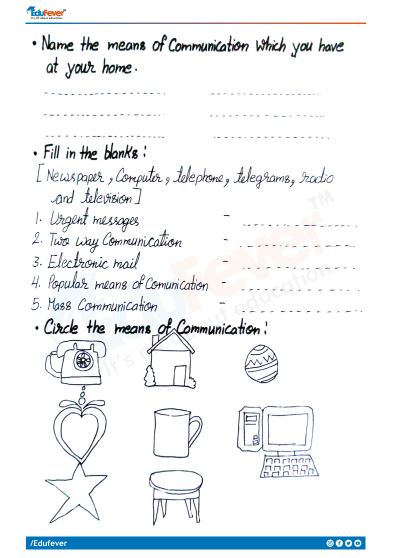 EduFever
It's all about education
• Name the means of Communication which you have
at your home.
• Fill in the blanks:
[Newspaper, Computer, telephone, telegrams, radio
and television]
1. Urgent messages -
2. Two way Communication -
3. Electronic mail -
4. Popular means of Comunication -
5. Mass Communication -
• Circle the means of Communication:
EduFever™
It's all about education
/Edufever